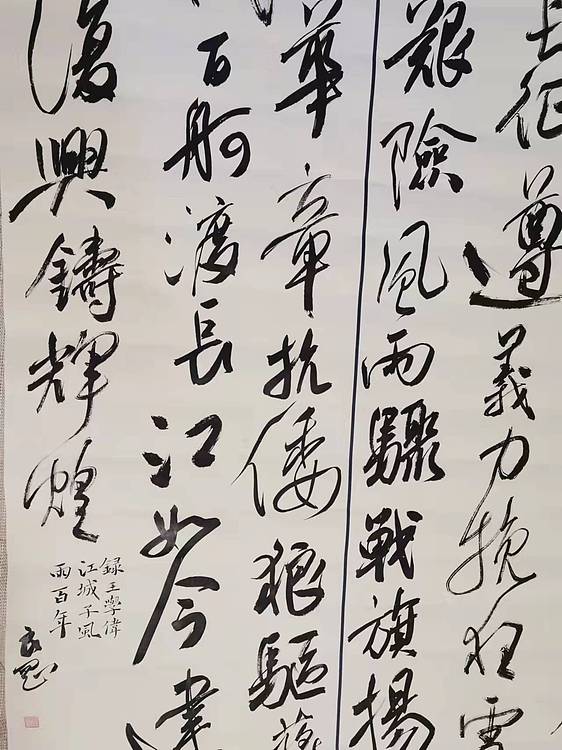 征遵義力挽狂
艱險風雨驟戰旗揚
華章抗倭狼驅
百舸渡長江如今
復興鑄輝煌
録王學偉
江城子風
雨百年